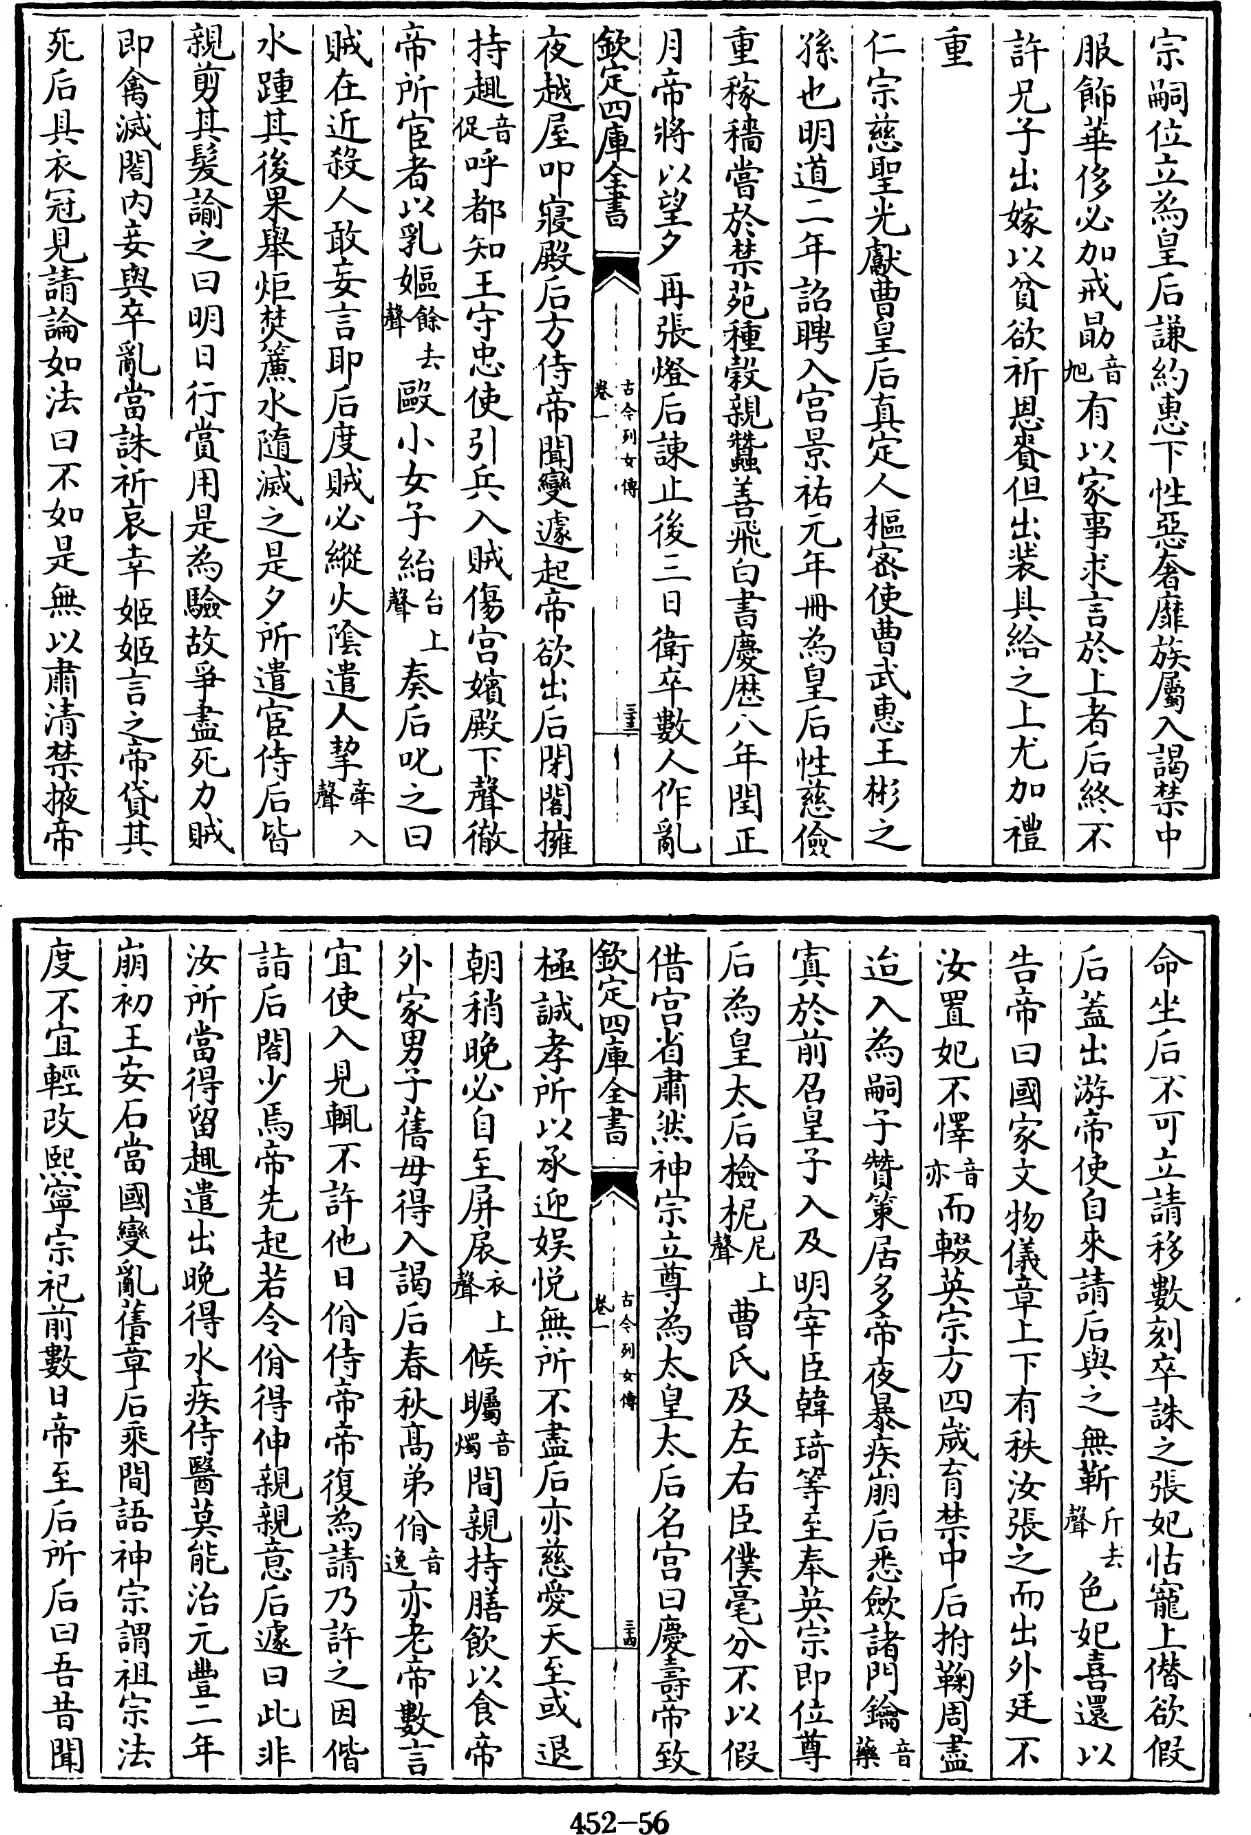 宗嗣位立為皇后謙約惠下性惡奢靡族屬入謁禁中
服飾華侈必加戒勗音旭有以家事求言於上者后終不
許兄子出嫁以貧欲祈恩賚但出裝具給之上尤加禮
重
仁宗慈聖光獻曹皇后真定人樞密使曹武惠王彬之
孫也明道二年詔聘入宫景祐元年冊為皇后性慈儉
重稼穡嘗於禁苑種穀親蠶善飛白書慶歴八年閏正
月帝將以望夕再張燈后諫止後三日衛卒數人作亂
欽定四庫全書
古今列女傳
卷一
三十三
夜越屋叩寢殿后方侍帝聞變遽起帝欲出后閉閤擁
持趣音促呼都知王守忠使引兵入賊傷宫嬪殿下聲徹
帝所宦者以乳嫗餘去聲毆小女子紿台上聲奏后叱之曰
賊在近殺人敢妄言耶后度賊必縱火陰遣人挈牽入聲
水踵其後果舉炬焚簾水隨滅之是夕所遣宦侍后皆
親剪其髮諭之曰明日行賞用是為驗故爭盡死力賊
即禽滅閤内妾與卒亂當誅祈哀幸姬姬言之帝貸其
死后具衣冠見請論如法曰不如是無以肅清禁掖帝
命坐后不可立請移數刻卒誅之張妃怙寵上僭欲假
后蓋出游帝使自來請后與之無靳斤去聲色妃喜還以
告帝曰國家文物儀章上下有秩汝張之而出外廷不
汝置妃不懌音亦而輟英宗方四歲育禁中后拊鞠周盡
迨入為嗣子贊策居多帝夜暴疾崩后悉斂諸門鑰音藥
寘於前召皇子入及明宰臣韓琦等至奉英宗即位尊
后為皇太后檢柅尼上聲曹氏及左右臣僕毫分不以假
借宫省肅然神宗立尊為太皇太后名宫曰慶壽帝致
欽定四庫全書
古今列女傳
卷一
三十四
極誠孝所以承迎娱悦無所不盡后亦慈愛天至或退
朝稍晚必自至屏扆衣上聲候矚音燭間親持膳飲以食帝
外家男子舊毋得入謁后春秋高弟佾音逸亦老帝數言
宜使入見輒不許他日佾侍帝帝復為請乃許之因偕
詣后閤少焉帝先起若令佾得伸親親意后遽曰此非
汝所當得留趣遣出晚得水疾侍醫莫能治元豐二年
崩初王安石當國變亂舊章后乘間語神宗謂祖宗法
度不宜輕改熙寧宗祀前數日帝至后所后曰吾昔聞
452-56